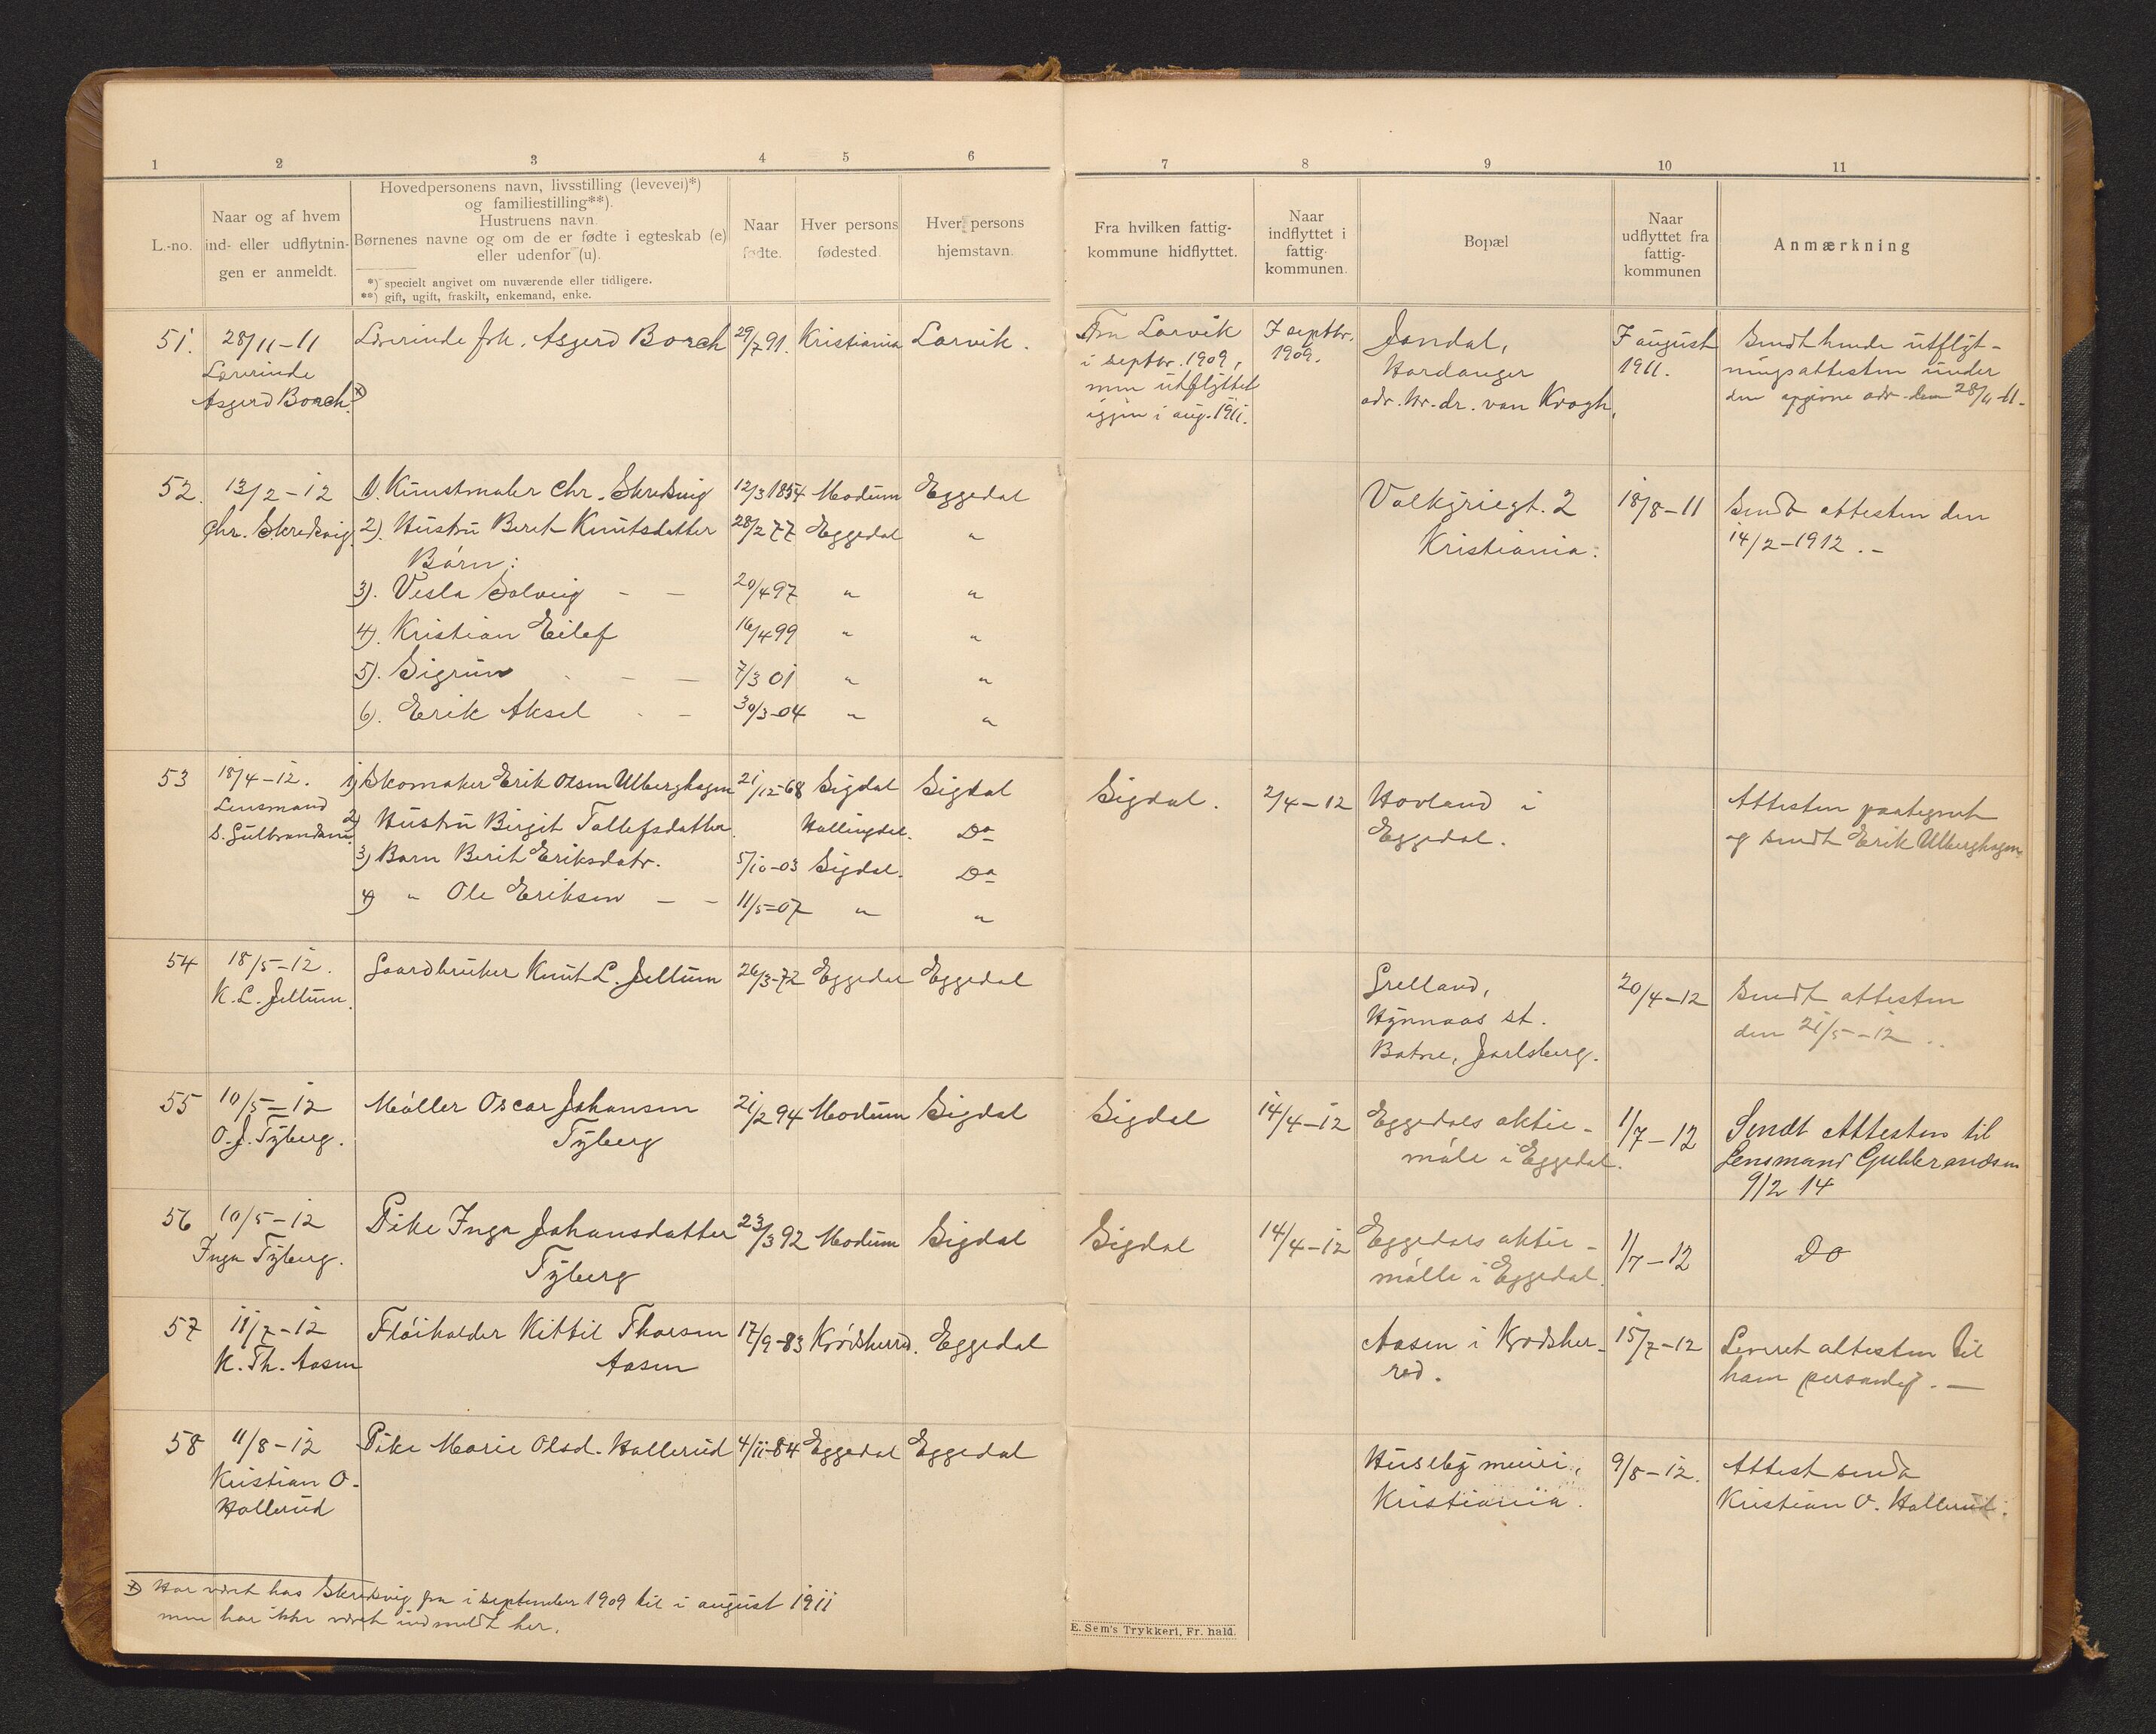 1 2 3 4 5 6 7 8 9 10 11
L.-no.
Naar og af hvem
ind- eller udflytnin-
gen er anmeldt.
Hovedpersonens navn, livsstilling (levevei)*)
og familiestilling**).
Hustruens navn.
Børnenes navne og om de er fødte i egteskab (e)
eller udenfor (u).
*) specielt angivet om nuværende eller tidligere.
**) gift, ugift, fraskilt, enkemand, enke.
Naar
fødte.
Hver persons
fødested.
Hver persons
hjemstavn.
Fra hvilken fattig-
kommune hidflyttet.
Naar
indflyttet i
fattig-
kommunen.
Bopæl
Naar
udflyttet fra
fattig-
kommunen
Anmærkning
51.
28/11-11
Lærerinde
Asgerd Borch. x)
Lærerinde frk. Asgerd Borch
29/7 91.
Kristiania
Larvik.
Fra Larvik
i septbr. 1909,
men utflyttet
iggjen i aug. 1911.
I septbr.
1909.
Jondal,
Hardanger
adr. hr. dr. von Krogh,
I august
1911.
Sendt hende utflyt-
ningsattesten under
den opgivne adr. den 28/11-11.
52.
13/2-12
Chr. Skredsvig
1). Kunstmaler Chr. Skredsvig
12/3 1854
Modum
Eggedal
2). Hustru Beret Knutsdatter
28/2 77
Eggedal
"
Børn:
3). Vesla Solveig - -
20/4 97
" "
4). Kristian Eilef
16/4 99
" "
5). Sigrun - - -
7/3 01
" "
6). Erik Aksel - -
30/3-04
" "
Valkyriegt. 2
Kristiania.
18/8-11
Sendt attesten den
14/2-1912.-
53
18/4-12.
Lensmand
S. Gulbrandsen
1) Skomaker Erik Olsen Ulberghagen
21/12-68
Sigdal
Sigdal
2) Hustru Birgit Tollefsdatter.
Hallingdal.
Do
3) Barn Berit Eriksdatr.
5/10-03
Sigdal.
Do
4) " Ole Eriksen - -
11/5-07
" "
Sigdal.
2/4-12
Hovland i
Eggedal.
Attesten paategnet
og sendt Erik Ulberghagen.
54
18/5-12.
K. L. Jellum.
Gaardbruker Knut L. Jellum
26/3-72
Eggedal
Eggedal
Grelland,
Hynnaas st.
Botne, Jarlsberg.
20/4-12
Sendt attesten
den 21/5-12..
55
10/5-12
O. J. Tyberg.
Møller Oscar Johansen
Tyberg
21/2 94
Modum
Sigdal
Sigdal
14/4-12
Eggedals aktie-
møle i Eggedal.
1/7-12
Sendt Attesten til
Lensmand Gulbrandsen
9/2 14
56
10/5-12
Inga Tyberg.
Pike Inga Johansdatter
Tyberg
23/3 92
Modum
Sigdal
Sigdal
14/4-12
Eggedals aktie-
mølle i Eggedal.
1/7-12
Do
57
11/7-12
K. Th. Aasen
Fløiholder Kittil Thorsen
Aasen
17/9-83
Krødsherred.
Eggedal
Aasen i Krødsher-
red.
15/7-12
Leveret attesten til
ham personlig.-
58
11/8-12
Kristian O.
Hallerud
Pike Marie Olsd. Hallerud
4/11-84
Eggedal
Eggedal
Huseby meieri,
Kristiania.
9/8-12.
Attest sendt
Kristian O. Hallerud.
x) Har været hos Skredsvig fra i september 1909 til i august 1911
men har ikke været indmeldt her.
E. Sem's Trykkeri, Fr.hald.